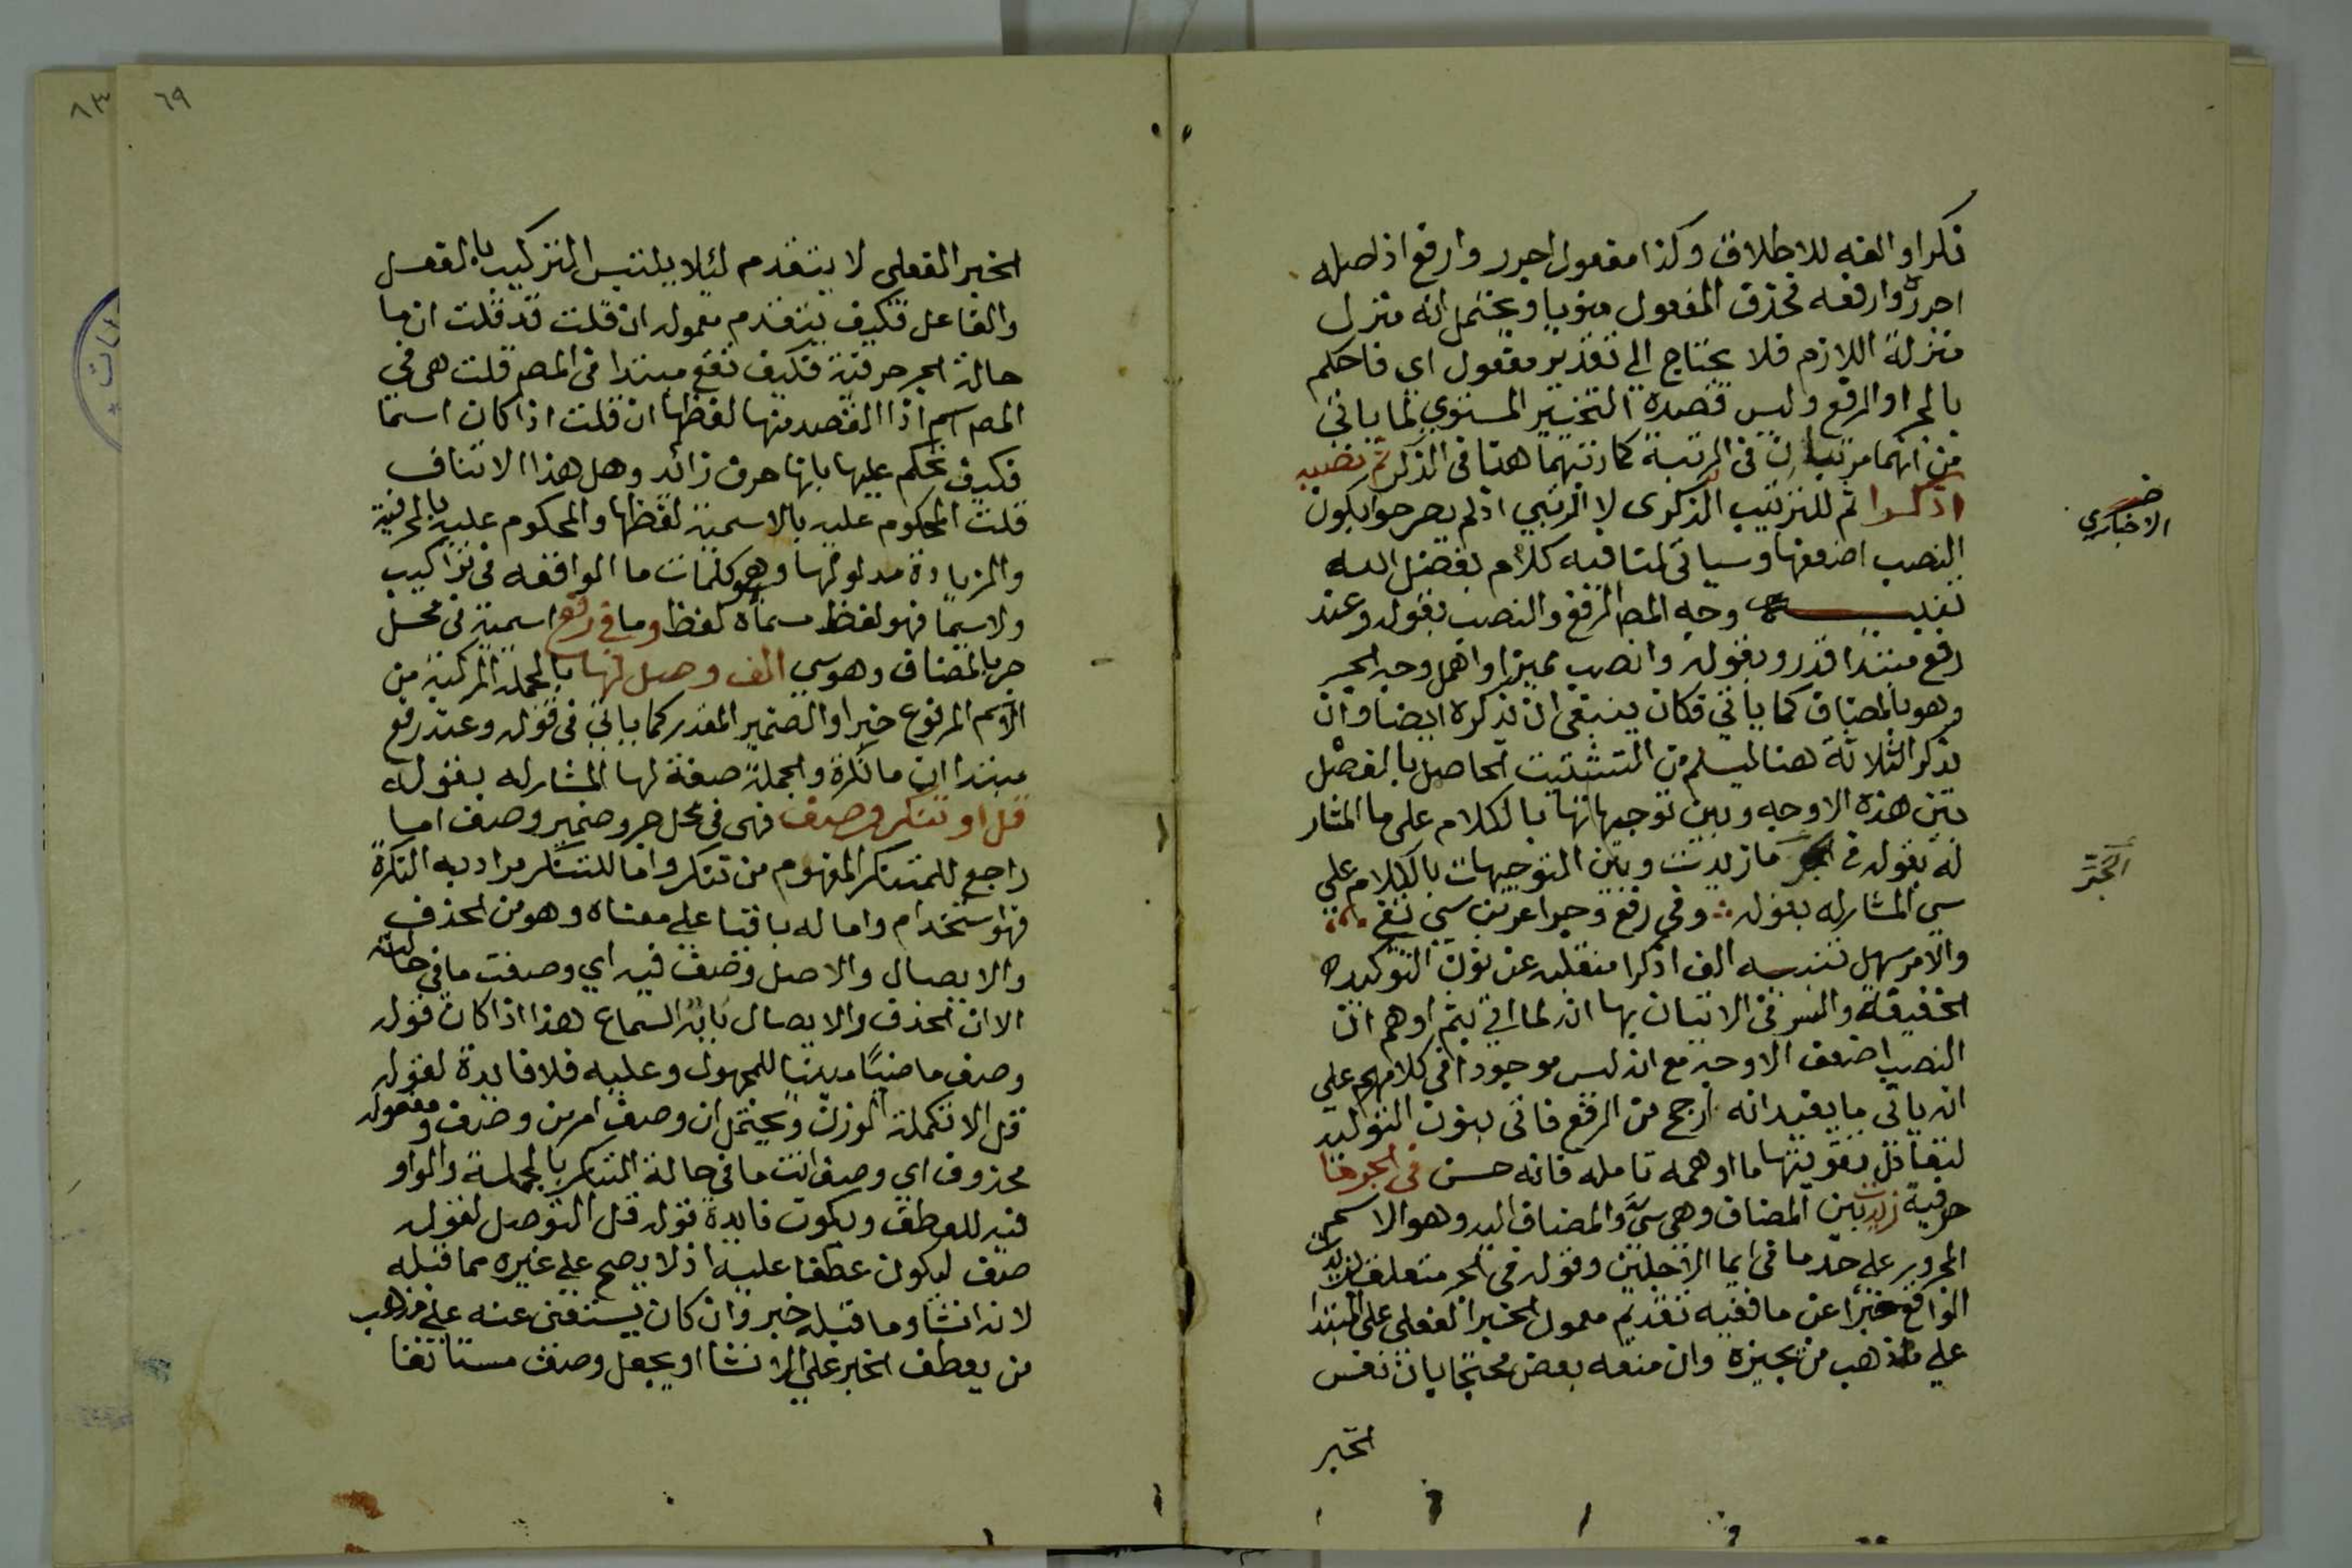 فكرا والفه للاطلاق وكذا مفعول اجرر وارفع اذ اصله
اجررن وارفعه فحذف المفعول منويا ويحتمل انه منزل
منزلة اللازم فلا يحتاج الي تقدير مفعول اي فاحكم
بالجر او الرفع وليس قصده التخيير المستوي لما ياتي
من انهما مرتبان في الرتبة كما رتبهما هنا في الذكر ثم نصبه
اذكرا ثم للترتيب الذكرى لا الرتبي اذ لم يصرحوا بكون
الاخباري
النصب اضعفها وسياتي لنا فيه كلام بفضل الله
تنبيه وجه المص الرفع والنصب بقوله وعند
رفع مبتدا قدر وبقوله وانصب مميزا واهمل وجه الجر
وهو بالمضاف كما ياتي فكان ينبغي ان يذكره ايضا وان
يذكر الثلاثة هنا ليسلم من التشتيت الحاصل بالفصل
بين هذه الاوجه وبين توجيهاتها بالكلام على ما المشار
له بقوله في الجر ما زيدت وبين التوجيهات بالكلام علي
الجر
سي المشار له بقوله وفي رفع وجر اعربن سي تفي
والامر سهل تنبيه الف اذكرا منقلبه عن نون التوكيد
الخفيفة والسر في الاتيان بها انه لما اتي بثم اوهم ان
النصب اضعف الاوجه مع انه ليس موجودا في كلامهم علي
انه ياتي ما يفيد انه ارجح من الرفع فاتى بنون التوكيد
لتعادل تقويتها ما اوهمه تامله فانه حسن في الجر ما
حرفية زيدت بين المضاف وهي سي والمضاف اليه وهو الاسم
المجرور على حد ما في ايما الاجلين وقوله في الجر متعلق بزيدت
الواقع خبرا عن ما ففيه تقديم معمول الخبر الفعلي على المبتدا
علي مذهب من يجيزه وان منعه بعض محتجا بان نفس
الخبر
٦٩
٨٣
الخبر الفعلى لا يتقدم لئلا يلتبس التركيب بالفعل
والفاعل فكيف يتقدم معموله ان قلت قد قلت ان ما
حالة الجر حرفية فكيف تقع مبتدا في المص قلت هي في
المص اسم اذ القصد منها لفظها ان قلت اذا كان اسما
فكيف يحكم عليها بانها حرف زائد وهل هذا الا تناف
قلت المحكوم عليه بالاسمية لفظها والمحكوم عليه بالحرفية
والزيادة مدلولها وهو كلمات ما الواقعه في تراكيب
ولاسيما فهو لفظ مسماه لفظ وما في رفع اسمية في محل
جر بالمضاف وهو سي الف وصل لها بالجملة المركبة من
الاسم المرفوع خبرا والضمير المقدر كما ياتي في قوله وعند رفع
مبتدا ان ما نكرة والجملة صفة لها المشار له بقوله
قل او تنكر وصف فهى في محل جر وضمير وصف اما
راجع للمتنكر المفهوم من تنكر واما للتنكر مرادا به النكرة
فهو استخدام واما له باقيا علي معناه وهو من الحذف
والايصال والاصل وصف فيه اي وصفت ما في حالته
الا ان الحذف والايصال بابه السماع هذا اذا كان قوله
وصف ماضيا مبنيا للمجهول وعليه فلا فايدة لقوله
قل الا تكملة الوزن ويحتمل ان وصف امر من وصف ومفعوله
محذوف اي وصف انت ما في حالة التنكر بالجملة والواو
فيه للعطف ويكون فايدة قوله قل التوصل لقوله
صف ليكون عطفا عليه اذ لا يصح علي غيره مما قبله
لانه انشا وما قبله خبر وان كان يستغنى عنه علي مذهب
من يعطف الخبر علي الانشا او يجعل وصف مستانفا